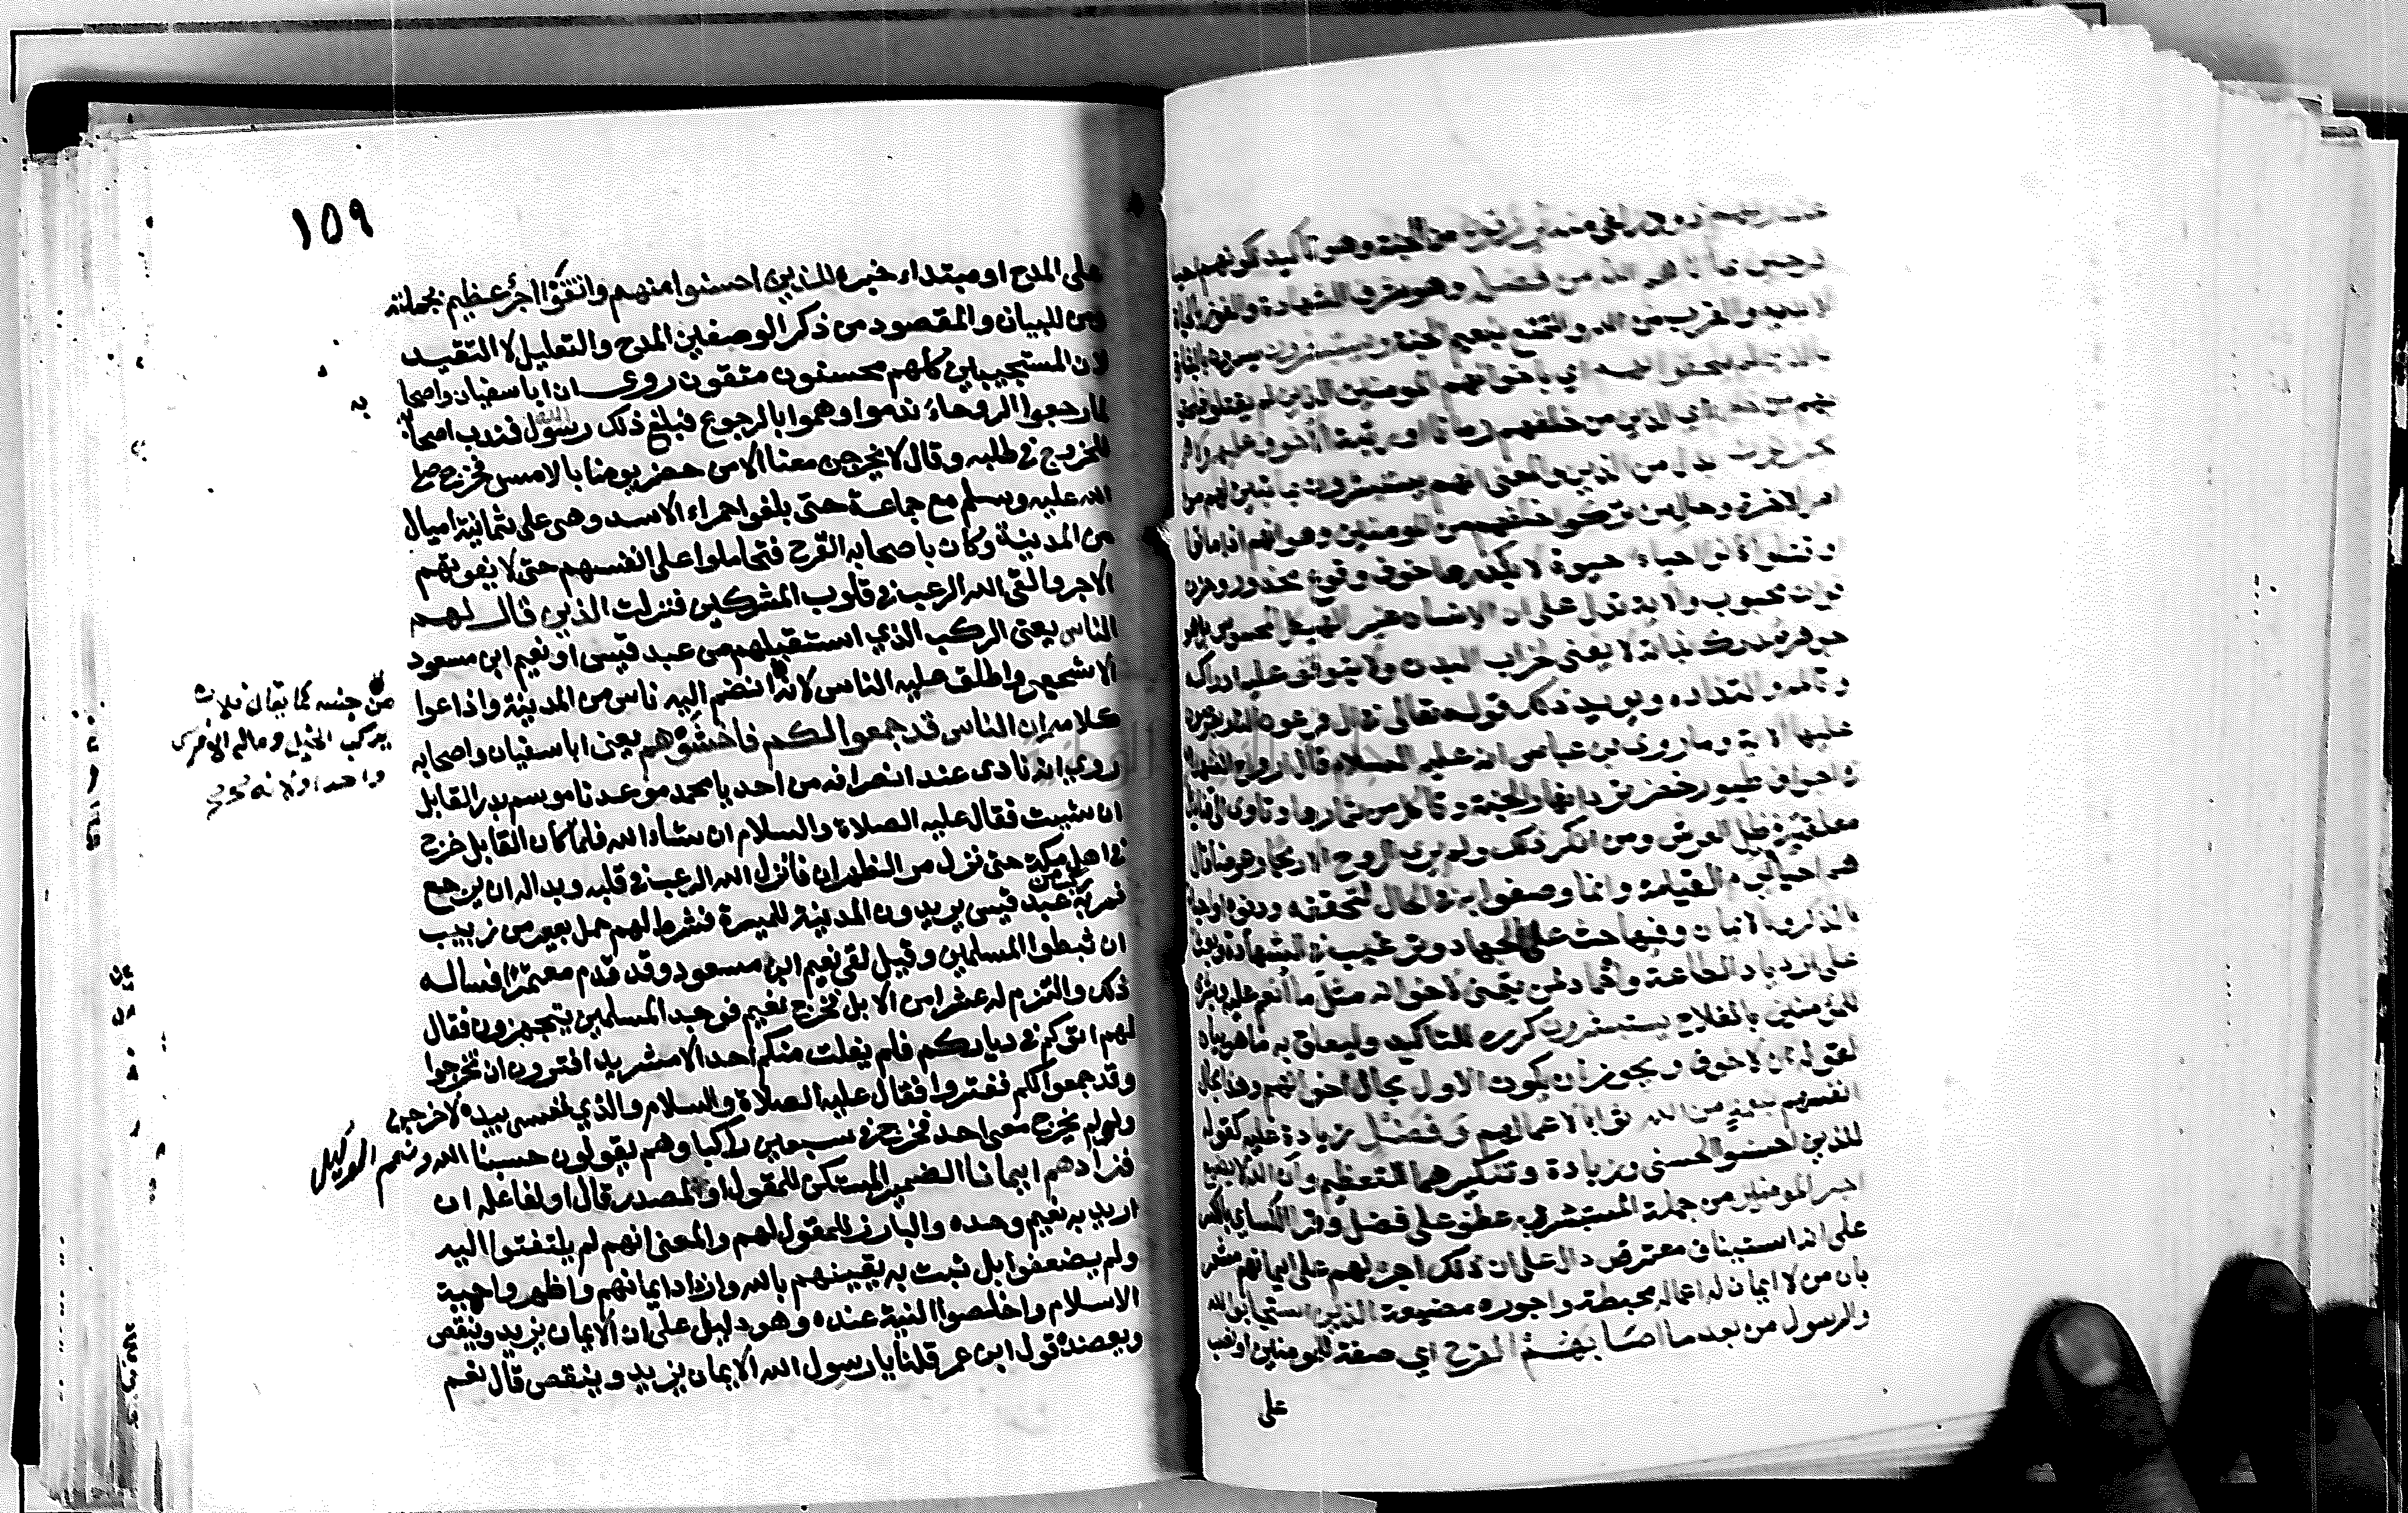 عند ربهم ذوو زلفى منه يرزقون من الجنة وهو تأكيد لكونهم احيا
فرحين بما اتاهم الله من فضله وهو شرف الشهادة والفوز بالحياة
الابدية والقرب من الله والتمتع بنعيم الجنة ويستبشرون يسرون بالبشارة
بالذين لم يلحقوا بهم اي باخوانهم المومنين الذين لم يقتلوا فيلحقوا
بهم من خلفهم اي الذين من خلفهم زمانا او رتبة الا خوف عليهم ولا هم
يحزنون بدل من الذين والمعنى انهم يستبشرون بما تبين لهم من
امر الاخرة وحال من تركوا خلفهم من المومنين وهو انهم اذا ماتوا
او قتلوا كانوا احياء حيوة لا يكدرها خوف وقوع محذور وحزن
فوات محبوب والاية تدل على ان الانسان غير الهيكل المحسوس بل هو
جوهر مدرك بذاته لا يفنى بخراب البدن ولا يتوقف عليه ادراكه
وتالمه والتذاذه ويويد ذلك قوله تعالى في ال فرعون النار يعرضون
عليها الاية وما روى ابن عباس انه عليه السلام قال ارواح الشهداء
في اجواف طيور خضر ترد انهار الجنة وتاكل من ثمارها وتاوى الى قناديل
معلقة في ظل العرش ومن انكر ذلك ولم يرى الروح الا ريحا وعرضا قال
هم احيا يوم القيامة وانما وصفوا به في الحال لتحققه ودنوه او احياء
بالذكر او الايمان وفيها حث على الجهاد وترغيب في الشهادة وبعث
على ازدياد الطاعة واحماد لمن يتمنى لاخوانه مثل ما أنعم عليه وبشرى
للمؤمنين بالفلاح يستبشرون كرره للتاكيد وليعلق به ما هو بيان
لقوله ان لا خوف ويجوز ان يكون الاول بحال اخوانهم وهذا بحال
انفسهم بنعمة من الله ثوابا لاعمالهم وفضل زيادة عليه كقوله
للذين احسنوا الحسنى وزيادة وتنكيرهما للتعظيم وأن الله لا يضيع
اجر المومنين من جملة المستبشر به عطف على فضل وقرا الكسائي بالكسر
على انه استيناف معترض دال على ان ذلك اجر لهم على ايمانهم مشعر
بان من لا ايمان له اعماله محبطة واجوره مضيعة الذين استجابوا لله
والرسول من بعد ما اصابهم القرح اي صفة للمومنين او نصب
على
١٥٩
على المدح او مبتداء خبره للذين احسنوا منهم واتقوا اجر عظيم بجملته
ومن للبيان والمقصود من ذكر الوصفين المدح والتعليل لا التقييد
لان المستجيبين كلهم محسنون متقون روى ان ابا سفيان واصحا
به
لما رجعوا الروحاء ندموا وهموا بالرجوع فبلغ ذلك رسول الله فندب اصحابه
للخروج في طلبه وقال لا يخرجن معنا الا من حضر يومنا بالامس فخرج صلى
الله عليه وسلم مع جماعة حتى بلغوا حمراء الاسد وهى على ثمانية اميال
من المدينة وكان باصحابه القرح فتحاملوا على انفسهم حتى لا يفوتهم
الاجر والقى الله الرعب في قلوب المشركين فنزلت الذين قال لهم
الناس يعنى الركب الذي استقبلهم من عبد قيس او نعيم ابن مسعود
الاشجعي واطلق عليه الناس لانه انضم اليه ناس من المدينة واذاعوا
من جنسه كما يقال فلان
يركب الخيل وماله الا فرس
واحد او لانه
كلامه ان الناس قد جمعوا لكم فاخشوهم يعنى ابا سفيان واصحابه
روى انه نادى عند انصرافه من احد يا محمد موعدنا موسم بدر القابل
ان شيت فقال عليه الصلاة والسلام ان شاء الله فلما كان القابل خرج
في اهل مكة حتى نزل مر الظهران فانزل الله الرعب في قلبه وبدا له ان يرجع
فمر به ركب من عبد قيس يريدون المدينة للميرة فشرط لهم حمل بعير من زبيب
ان ثبطوا المسلمين وقيل لقى نعيم ابن مسعود وقد قدم معتمرا فساله
ذلك والتزم له عشرا من الابل فخرج نعيم فوجد المسلمين يتجهزون فقال
لهم اتوكم في دياركم فلم يفلت منكم احد الا شريد افترون ان تخرجوا
وقد جمعوا لكم ففتروا فقال عليه الصلاة والسلام والذي نفسى بيده لاخرجن
ولو لم يخرج معى احد فخرج في سبعين راكبا وهم يقولون حسبنا الله ونعم الوكيل
فزادهم ايمانا الضمير المستكن للمقول او المصدر قال او لفاعله ان
اريد به نعيم وحده والبارز للمقول لهم والمعنى انهم لم يلتفتوا اليه
ولم يضعفوا بل ثبت به يقينهم بالله وازداد ايمانهم واظهروا حمية
الاسلام واخلصوا النية عنده وهو دليل على ان الايمان يزيد وينقص
ويعضده قول ابن عمر قلنا يا رسول الله الايمان يزيد وينقص قال نعم